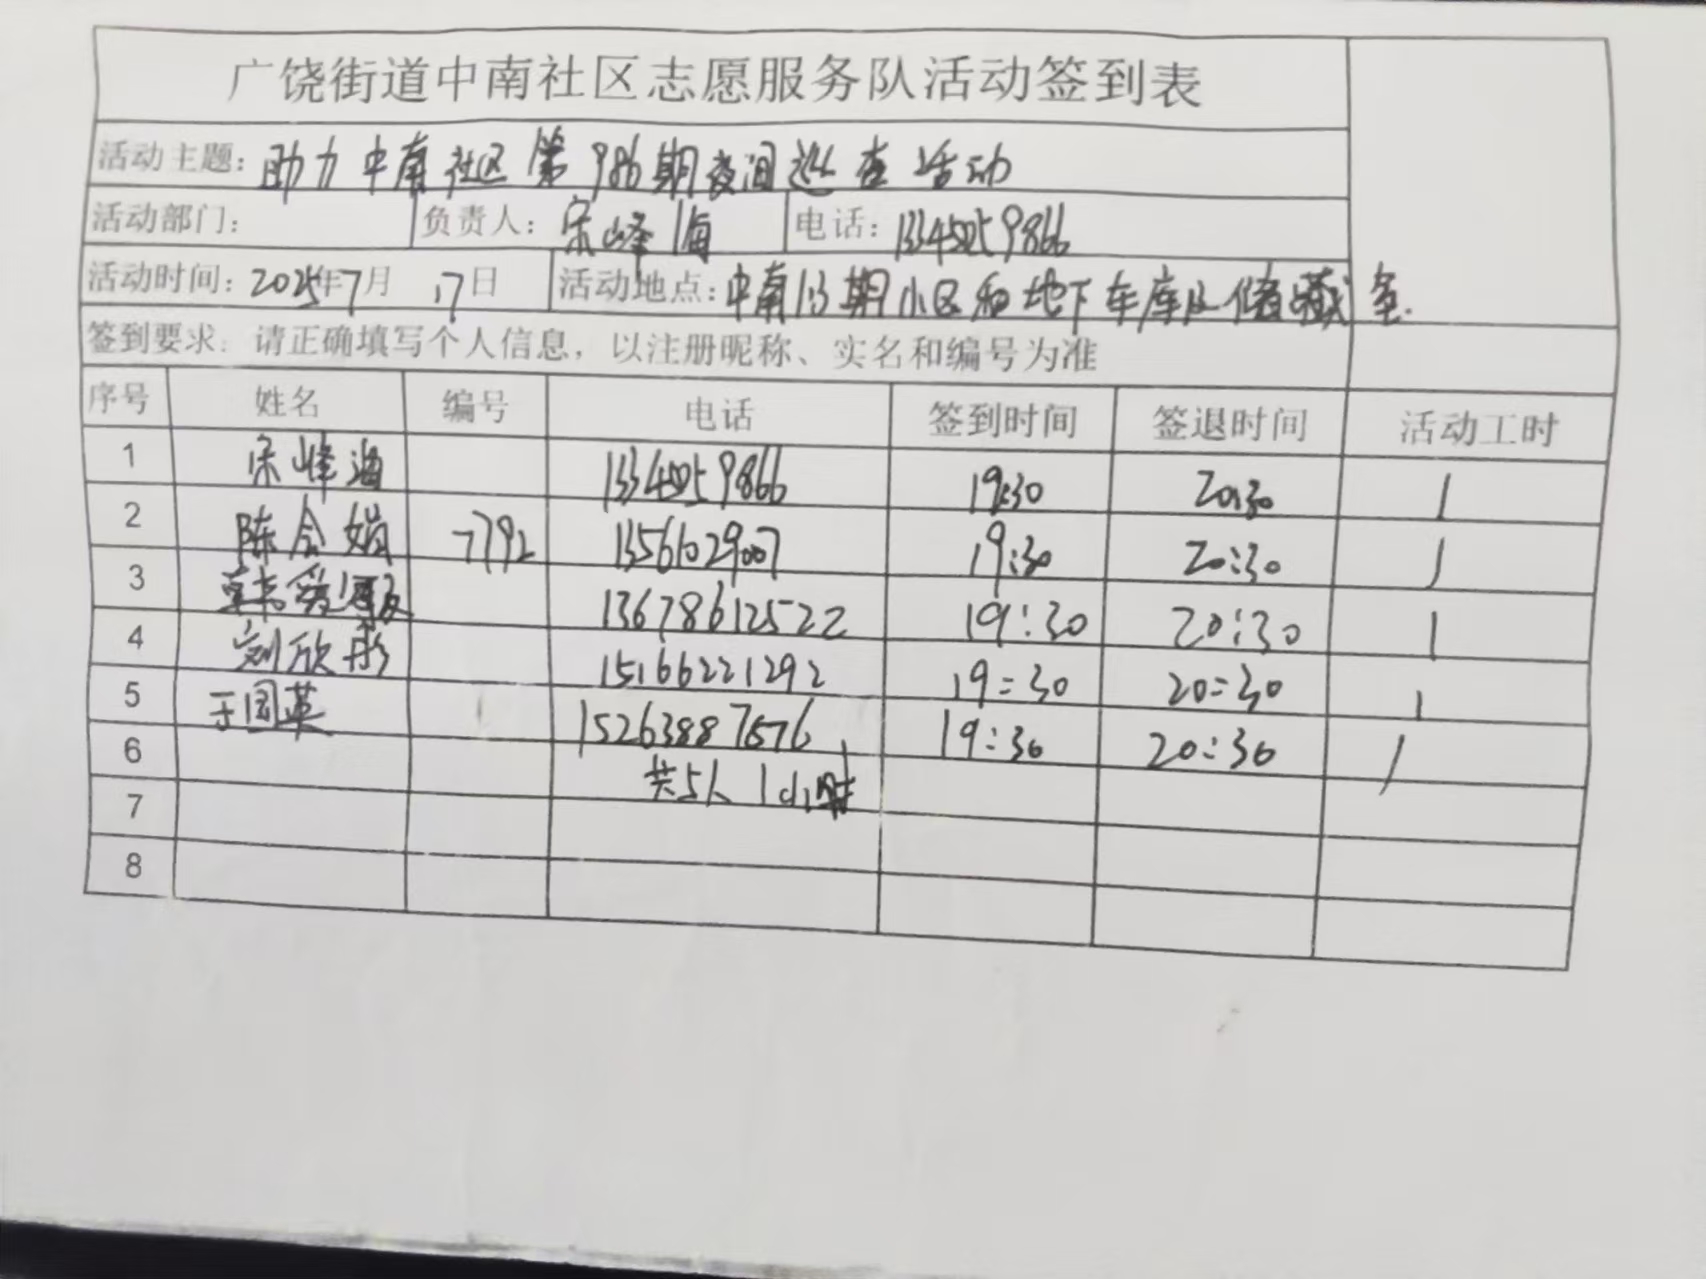 广饶街道中南社区志愿服务队活动签到表
活动主题：助力中南社区第986期夜间巡查活动
活动部门： 负责人：宋峰海 电话：13345059866
活动时间：2025年7月17日 活动地点：中南1.3期小区和地下车库及储藏室.
签到要求：请正确填写个人信息，以注册昵称、实名和编号为准
序号 姓名 编号 电话 签到时间 签退时间 活动工时
1 宋峰海 13345059866 19:30 20:30 1
2 陈会娟 7792 13561029007 19:30 20:30 1
3 韩爱 13678612522 19:30 20:30 1
4 刘欣彤 15166221292 19:30 20:30 1
5 于国英 15263887576 19:30 20:30 1
6 共5人 1小时
7
8